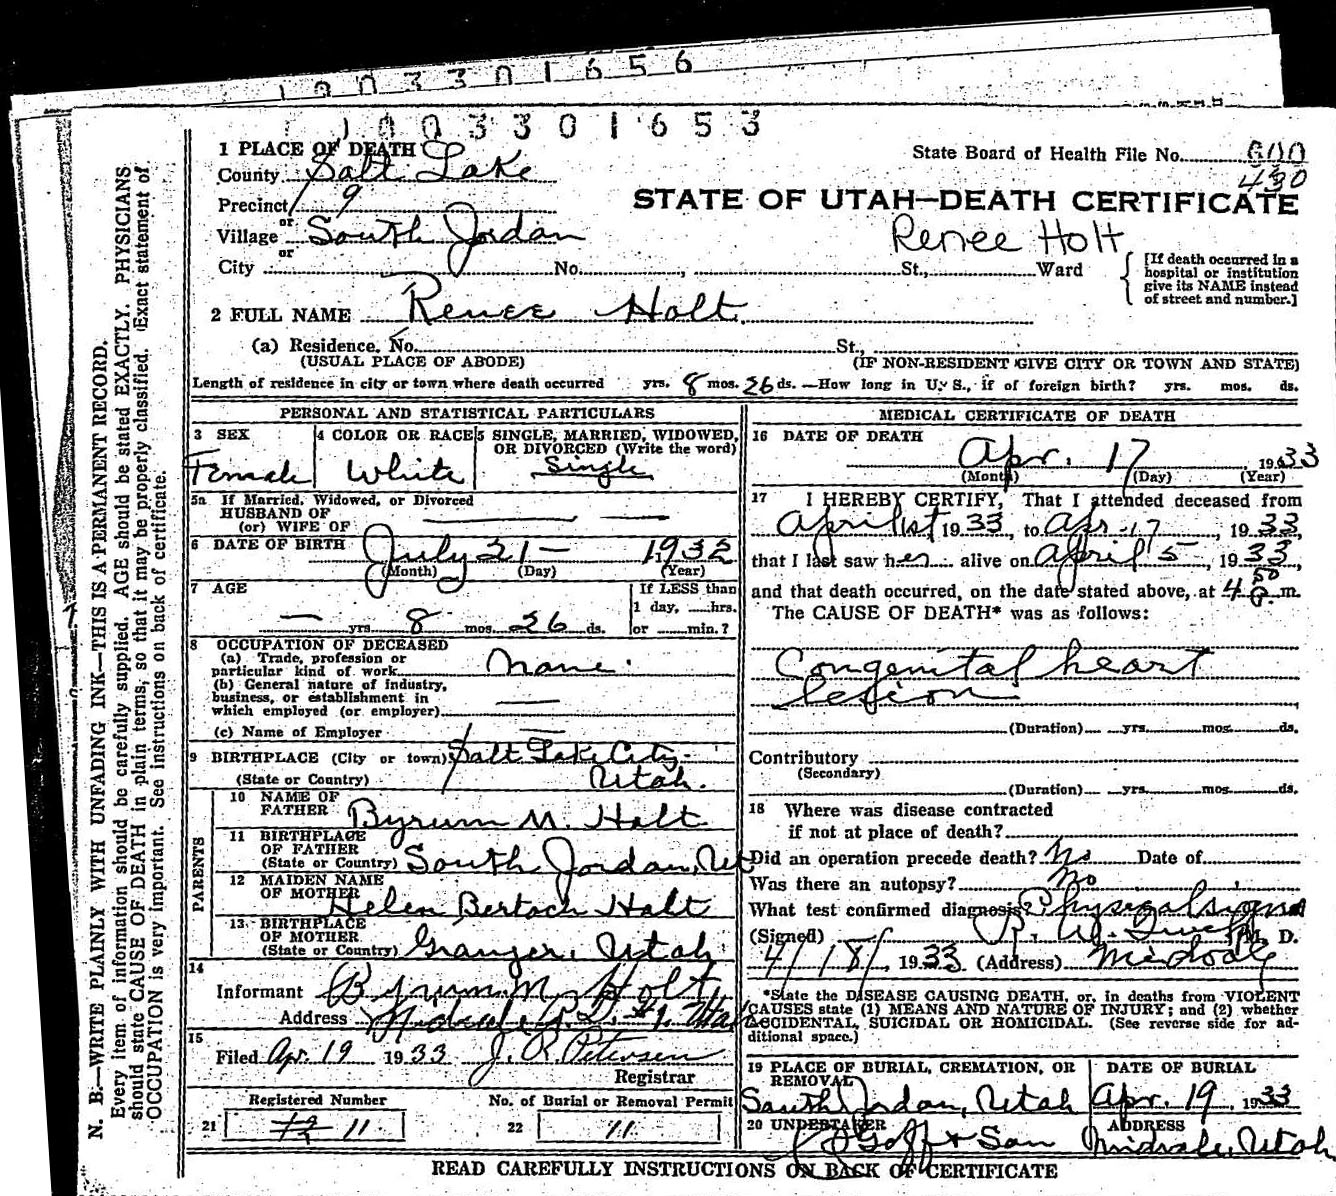 1 0 0 3 3 0 1 6 5 6
1 0 0 3 3 0 1 6 5 3
1 PLACE OF DEATH
County Salt Lake
State Board of Health File No. 600
430
Precinct 9
STATE OF UTAH—DEATH CERTIFICATE
or
Village South Jordan
Renee Holt
or
City No. St., Ward
[If death occurred in a
hospital or institution
give its NAME instead
of street and number.]
2 FULL NAME Renee Holt
(a) Residence. No. St.,
(USUAL PLACE OF ABODE) (IF NON-RESIDENT GIVE CITY OR TOWN AND STATE)
Length of residence in city or town where death occurred yrs. 8 mos. 26 ds. —How long in U. S., if of foreign birth? yrs. mos. ds.
PERSONAL AND STATISTICAL PARTICULARS
3 SEX
Female
4 COLOR OR RACE
White
5 SINGLE, MARRIED, WIDOWED,
OR DIVORCED (Write the word)
Single
5a If Married, Widowed, or Divorced
HUSBAND OF
(or) WIFE OF
6 DATE OF BIRTH July 21 — 1932
(Month) (Day) (Year)
7 AGE
— yrs 8 mos. 26 ds.
If LESS than
1 day, hrs.
or min.?
8 OCCUPATION OF DECEASED
(a) Trade, profession or
particular kind of work None
(b) General nature of industry,
business, or establishment in
which employed (or employer) —
(c) Name of Employer —
9 BIRTHPLACE (City or town) Salt Lake City
(State or Country) Utah.
PARENTS
10 NAME OF
FATHER Byrum M. Holt
11 BIRTHPLACE
OF FATHER
(State or Country) South Jordan, Ut
12 MAIDEN NAME
OF MOTHER Helen Bertoch Holt
13 BIRTHPLACE
OF MOTHER
(State or Country) Granger, Utah
14
Informant Byrum M. Holt
Address Midvale R.D. #1. Utah
15
Filed Apr. 19 1933 J. R. Petersen
Registrar
Registered Number
21 11
No. of Burial or Removal Permit
22 11
MEDICAL CERTIFICATE OF DEATH
16 DATE OF DEATH
Apr. 17 1933
(Month) (Day) (Year)
17 I HEREBY CERTIFY, That I attended deceased from
April 1st 1933, to Apr. 17, 1933,
that I last saw her alive on April 5, 1933,
and that death occurred, on the date stated above, at 4 50 P. m.
The CAUSE OF DEATH* was as follows:
Congenital heart
lesion
(Duration) yrs. mos. ds.
Contributory
(Secondary)
(Duration) yrs. mos. ds.
18 Where was disease contracted
if not at place of death?
Did an operation precede death? No Date of
Was there an autopsy? No
What test confirmed diagnosis? Physical signs
(Signed) M. D.
4/18/, 1933 (Address) Midvale
*State the DISEASE CAUSING DEATH, or, in deaths from VIOLENT
CAUSES state (1) MEANS AND NATURE OF INJURY; and (2) whether
ACCIDENTAL, SUICIDAL OR HOMICIDAL. (See reverse side for ad-
ditional space.)
19 PLACE OF BURIAL, CREMATION, OR
REMOVAL
South Jordan, Utah
DATE OF BURIAL
Apr. 19, 1933
20 UNDERTAKER
Goff & Son
ADDRESS
Midvale, Utah
READ CAREFULLY INSTRUCTIONS ON BACK OF CERTIFICATE
N. B.—WRITE PLAINLY WITH UNFADING INK—THIS IS A PERMANENT RECORD.
Every item of information should be carefully supplied. AGE should be stated EXACTLY. PHYSICIANS
should state CAUSE OF DEATH in plain terms, so that it may be properly classified. Exact statement of
OCCUPATION is very important. See instructions on back of certificate.